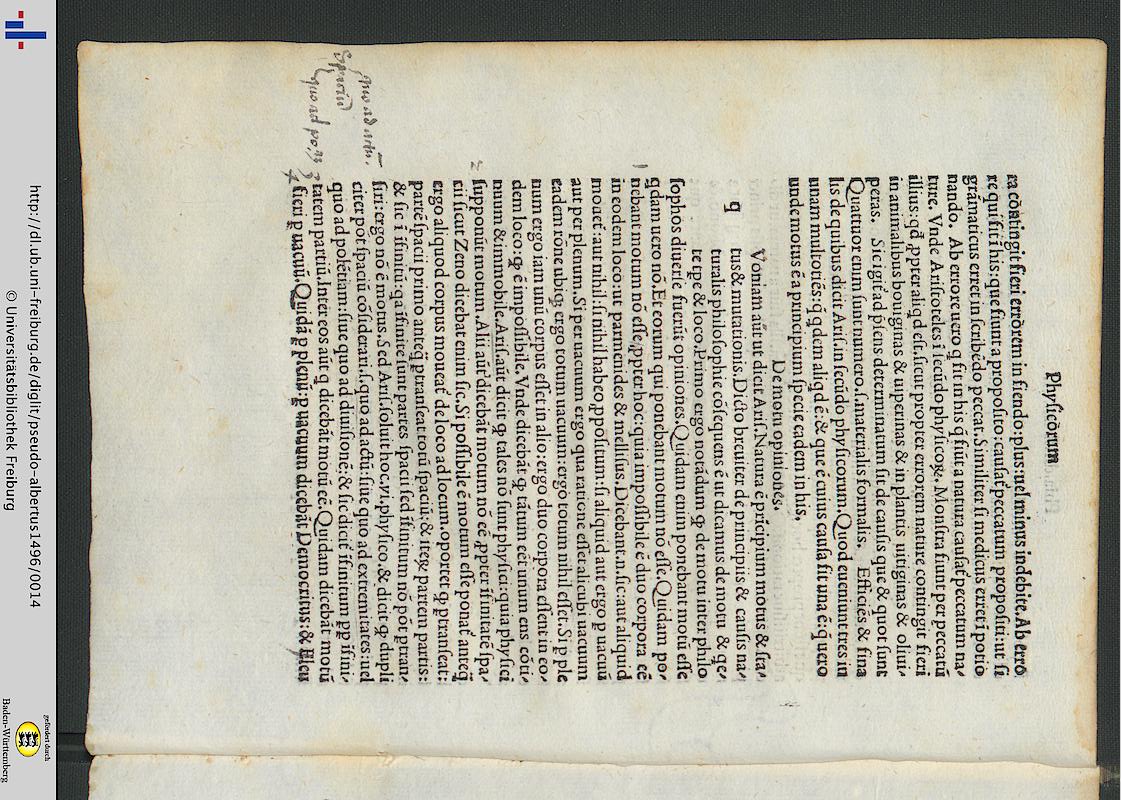 Physicorum
ra cõtingit fieri errorem in fiendo: plus: uel minus indebite. Ab erro
re quisiti i his: que fiunt a proposito: causať peccatum propositi: ut si
grãmaticus erret in scribẽdo peccat. Similiter si medicus erret i potio
nando. Ab errore uero q̃ fit in his q̃ fiũt a natura causať peccatum na/
ture. Vnde Aristoteles i secũdo physicoꝝ. Monstra fiunt per peccatũ
illius: qď ꝓpter aliqď est. sicut propter errorem nature contingit fieri
in animalibus bouigenas & uiperinas & in plantis uitigenas & oliui/
peras. Sic igiť ad p̃sens determinatum sit de causis que & quot sunt
Quattuor enim sunt numero. s. materialis formalis. Efficiẽs & fina
lis de quibus dicit Aris. in secũdo physicorum. Quod eueniunt tres in
unam multotiẽs: q̃ qdem aliqd ẽ: & que ẽ cuius causa sit una ẽ: q̃ uero
unde motus ẽ a principium specie eadem in his.
De motu opiniones.
q Voniam aũt ut dicit Aris. Natura ẽ prĩcipium motus & sta/
tus & mutationis. Dicto breuiter de principiis & causis na/
turalis philosophie cõsequens ẽ ut dicamus de motu & qe/
te tp̃e & loco. Primo ergo notãdum ꝙ de motu inter philo
sophos diuerse fuerũt opiniones. Quidam enim ponebant motũ esse
qdam uero nõ. Et eorum qui ponebant motum nõ esse. Quidam po/
nebant motum nõ esse, ꝓpter hoc: quia impossibile ẽ duo corpora eẽ
in eodem loco: ut parmenides & mellisus. Dicebant. n. sic: aut aliquid
mouet: aut nihil: si nihil habeo ꝓpositum: si aliquid aut ergo ꝑ uacuũ
aut per plenum. Si per uacuum ergo qua ratione esset alicubi uacuum
eadem rõne ubiꝗ: ergo totum uacuum: ergo totum nihil esset. Si ꝑ ple
num ergo iam unũ corpus esset in alio: ergo duo corpora essent in eo/
dem loco. ꝙ ẽ impossibile. Vnde dicebãt ꝙ tãtum eẽt unum ens cõti/
nuum & immobile. Aris. aũt dicit ꝙ tales nõ sunt physici: quia physici
supponũt motum. Alii aũt dicebãt motum nõ eẽ ꝓpter ĩfinitatẽ spa/
cii sicut Zeno dicebat enim sic. Si possibile ẽ motum esse ponať anteꝗ̃
ergo aliquod corpus moueať de loco ad locum. oportet ꝙ ptranseat:
partẽ spacii primo anteꝗ̃ ptranseat totũ spaciũ: & iteꝝ partem partis:
& sic i ĩfinitũ: qa ĩfinite sunt partes spacii sed ĩfinitum nõ põt ptran/
siri: ergo nõ ẽ motus. Sed Aris. soluit hoc. vi. physico. & dicit ꝙ dupli
citer põt spaciũ cõsiderari. s. quo ad actũ: siue quo ad extremitates: uel
quo ad potẽtiam: siue quo ad diuisionẽ: & sic dicit ĩfinitum ꝓp ĩfini/
tatem partiũ. Inter eos aũt q̃ dicebãt motũ eẽ. Quidam dicebãt motũ
fieri ꝑ uacuũ. Quidã ꝑ plenũ. ꝑ uacuum dicebãt Democritus: & Eleu
1
2
quo ad actũ.
Spaciũ
quo ad
http://dl.ub.uni-freiburg.de/diglit/pseudo-albertus1496/0014
© Universitätsbibliothek Freiburg
gefördert durch
Baden-Württemberg